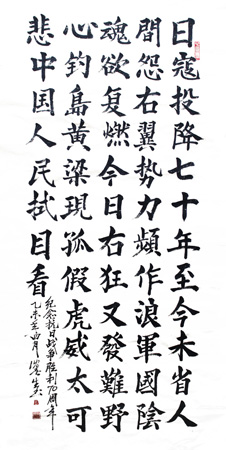 日寇投降七十年至今未省人
間怨右翼势力頻作浪軍國陰
魂欲复燃今日右狂又發難野
心钓島黄粱現孤假虎威太可
悲中国人民拭目看
纪念抗日战争胜利70周年
乙未